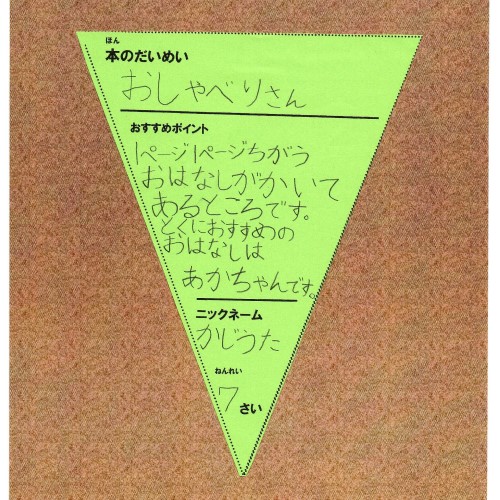 ほん
本のだいめい
おしゃべりさん
おすすめポイント
1ページ1ページちがう
おはなしがかいて
あるところです。
とくにおすすめの
おはなしは
あかちゃんです。
ニックネーム
かじうた
ねんれい
7さい